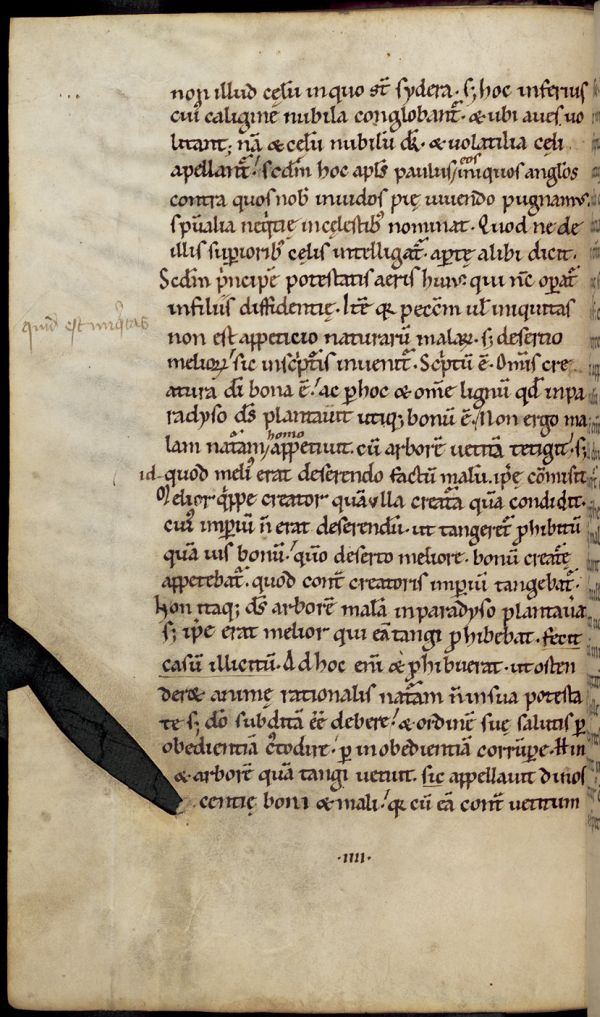 non illud cęlū in quo st̄ sydera. s; hoc inferius
cui᷒ caliginē nubila conglobant᷑. & ubi aues uo
litant; nā & cęlū nubilū dr̄. & uolatilia cęli
apellant᷑. Scdm̄ hoc apl̄s paulus iniquos anglōs
eos
contra quos nob̄ inuidos pię uiuendo pugnam᷒.
sp̄ualia neqͥtię in cęlestib᷒ nominat. Quod ne de
illis sup̄iorib᷒ cęlis intelligat᷑. ap̄te alibi dicit.
Scdm̄ pͥncipē potestatis aeris hui᷒. qui nc̄ op̄at᷑
in filiis diffidentię. Itē qꝛ pecc̄m ul̄ iniquitas
quid est iniqͥtas
non est appeticio naturarū malaꝝ. s; desertio
melioꝝ. sic in scͥpt᷑is inuenit᷑. Scͥptū ē. Om̄is cre
atura dī bona ē. ac p̄ hoc & om̄e lignū qd̄ in pa
radyso ds̄ plantauit utiq; bonū ē. Non ergo ma
homo
lam nat᷑am appetiuit. cū arborē uetitā tetigit. s;
id quod meli᷒ erat deserendo factū malū. ip̄e cōmisit
Melior qͥppe creator quā ulla creat᷑a quā condidit.
cui᷒ imp̄iū n̄ erat deserendū. ut tanger& p̄hibitū
quāuis bonū. qm̄ deserto meliore. bonū creat᷑ę
appetebat᷑. quod cont̄ creatoris imp̄iū tangebat᷑.
Non itaq; ds̄ arborē malā in paradyso plantau̅a
s; ip̄e erat melior qui eā tangi p̄hibebat. fecit
casū illicitū. Ad hoc eni̅ & p̄hibuerat. ut osten
der& animę rationalis nat᷑am n̄ in sua potesta
te s; dō subditā eē debere. & ordinē suę salutis p̄
obedientiā c᷒todire. p̄ inobedientiā corrūpe. Hinc
& arborē quā tangi uetuit. sic appellauit dinos
centię boni & mali. qꝛ cū eā cont̄ uetitum
.iiii.